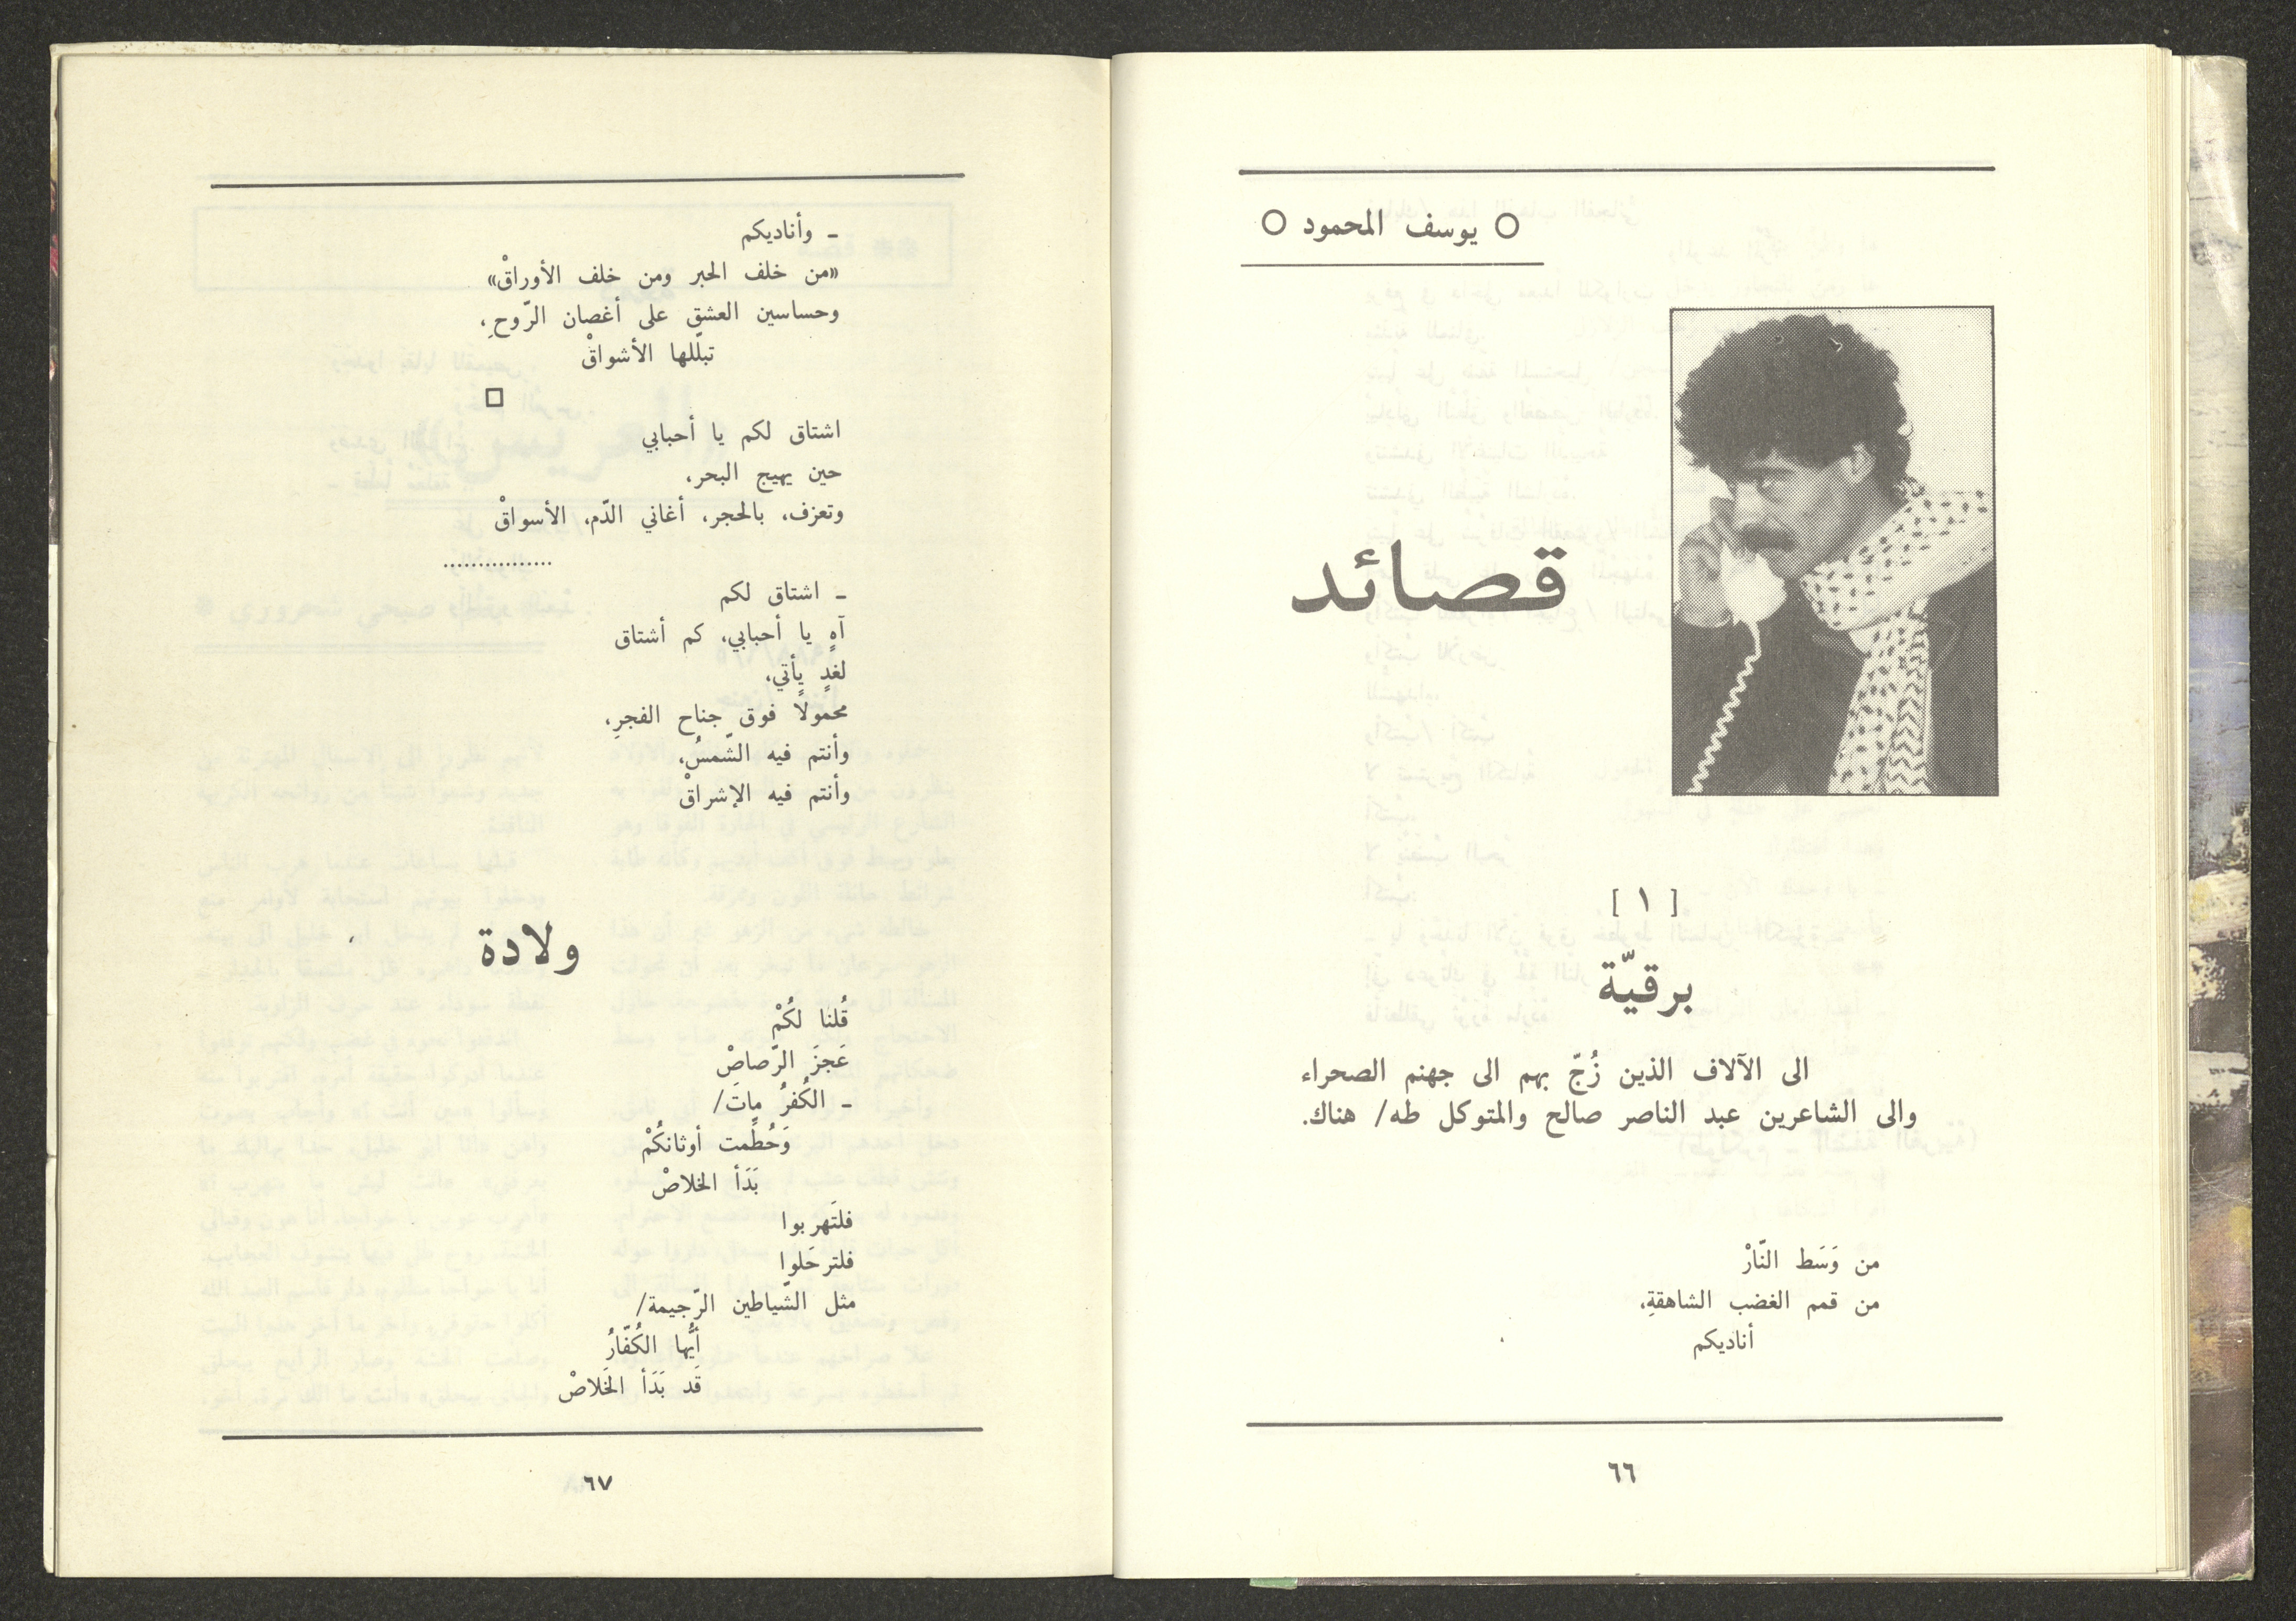 ○ يوسف المحمود ○
قصائد
[ ١ ]
برقيّة
الى الآلاف الذين زُجّ بهم الى جهنم الصحراء
والى الشاعرين عبد الناصر صالح والمتوكل طه/ هناك.
من وَسَط النّارْ
من قمم الغضب الشاهقةِ،
أناديكم
٦٦
ـ وأناديكم
«من خلف الحبر ومن خلف الأوراقْ»
وحساسين العشقِ على أغصان الرّوحِ،
تبلّلها الأشواقْ
□
اشتاق لكم يا أحبابي
حين يهيج البحر،
وتعزف، بالحجر، أغاني الدّم، الأسواقْ
................
ـ اشتاق لكم
آهٍ يا أحبابي، كم أشتاق
لغدٍ يأتي،
محمولاً فوق جناح الفجرِ،
وأنتم فيه الشّمسُ،
وأنتم فيه الإشراقْ
ولادة
قُلنا لكُمْ
عَجزَ الرّصاصْ
ـ الكُفرُ ماتَ/
وَحُطّمت أوثانكُمْ
بَدَأ الخلاصْ
فلتَهربوا
فلترحَلوا
مثل الشّياطين الرّجيمة/
أيُّها الكُفّارُ
قَد بَدَأ الخَلاصْ
٦٧